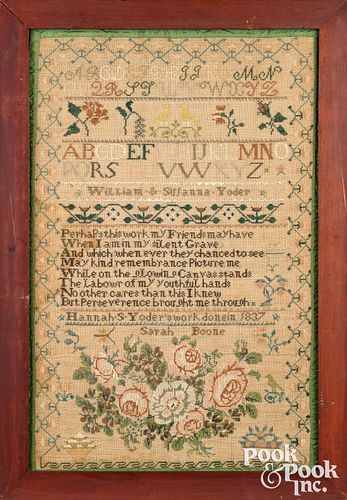 MN
QRST WXYZ
ABCDEF IJKLMNO
PQRS VVWXYZ
William & Susanna Yoder
Perhaps this work my Friends may have
When I am in my silent Grave
And which when ever they chanced to see
May kind remembrance Picture me
While on the glowing Canvas stands
The Labour of my youthful hands
No other cares than this I knew
But Perseverence brought me through x
Hannah S Yoder's work done in 1837
Sarah Boone
POOK
& POOK
INC.